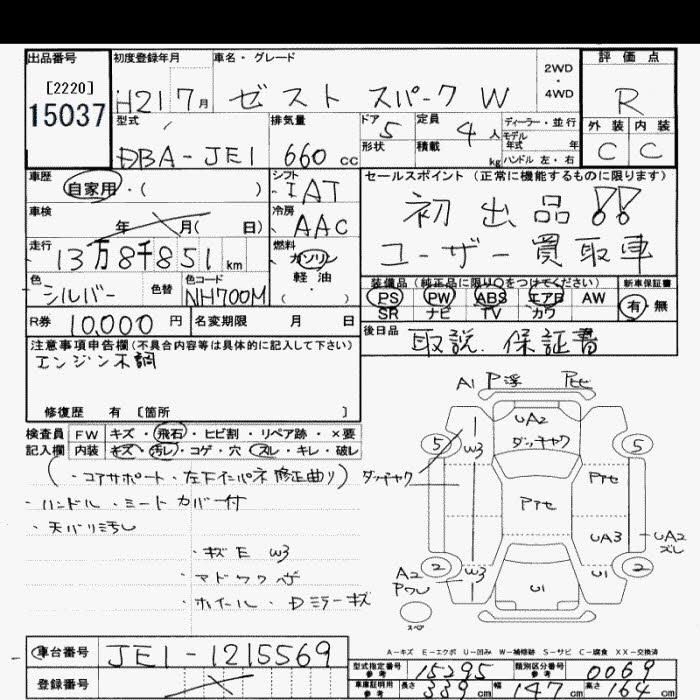 出品番号
[2220]
15037
初度登録年月
H21 7月
車名・グレード
ゼスト スパーク W
2WD
・
4WD
評価点
R
外装 内装
C C
型式
DBA-JE1
排気量
660 cc
ドア 5
形状
定員 4 人
積載 kg
ディーラー・並行
モデル年式 年
ハンドル 左・右
車歴
自家用・( )
シフト
IAT
セールスポイント (正常に機能するものに限ります)
初出品!!
ユーザー買取車
車検
年 月( 日)
冷房
AAC
走行
13万8千851 km
燃料
ガソリン
軽油
( )
色
シルバー
色替
色コード
NH700M
装備品 (純正品に限り○をつけてください)
PS PW ABS エアB AW
SR ナビ TV カワ
新車保証書
有・無
R券 10,000 円
名変期限 月 日
後日品
取説、保証書
注意事項申告欄 (不具合内容等は具体的に記入して下さい)
エンジン不調
修復歴 有 [箇所 ]
検査員 FW キズ・飛石・ヒビ割・リペア跡・×要
記入欄 内装 キズ・汚レ・コゲ・穴・スレ・キレ・破レ
(・コアサポート・左下インパネ修正曲り)
・ハンドル・シートカバー付
・天バリ汚レ
・キズE W3
・ホイール・Dミラーキズ
A1 P浮
UA2
ダッチャク
5 5
W3
ダッチャク
Pアセ
Pアセ
UA3
UA2
ズレ
2 2
W3
A2
U1
U1
スペア
A-キズ E-エクボ U-凹み W-補修跡 S-サビ C-腐食 XX-交換済
車台番号 JE1-1215569
登録番号
型式指定番号
参考
15395
類別区分番号
参考
0069
車庫証明用
参考
長さ 339 cm 幅 147 cm 高さ 164 cm